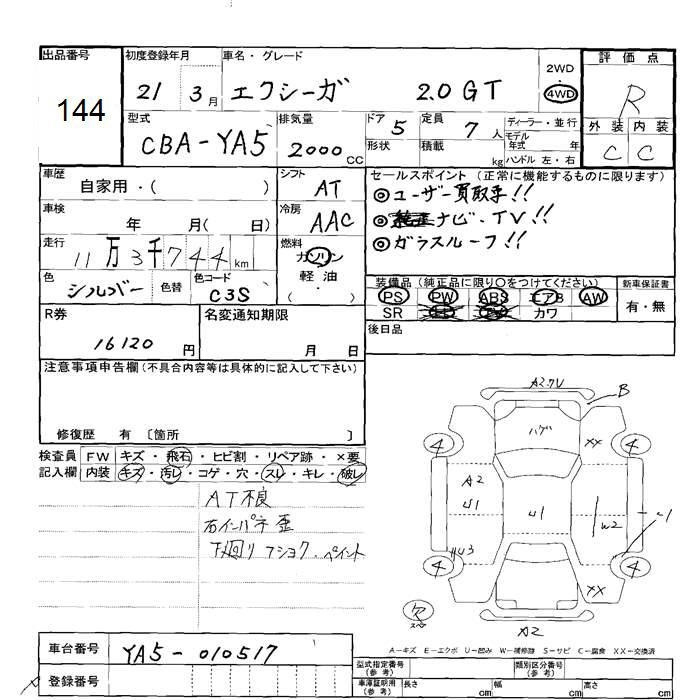 出品番号 初度登録年月 車名・グレード 2WD・4WD 評価点
144 21 3月 エクシーガ 2.0GT R
型式 CBA-YA5 排気量 2000CC ドア 5 定員 7人 ディーラー・並行
形状 積載 kg モデル年式 年 ハンドル 左・右
外装 内装
C C
車歴 自家用・( ) シフト AT
車検 年 月( 日) 冷房 AAC
走行 11万3千744km 燃料 ガソリン 軽油 ・( )
色 シルバー 色替 色コード C3S
セールスポイント(正常に機能するものに限ります)
◎ユーザー買取車!!
◎ナビ・TV!!
◎ガラスルーフ!!
装備品(純正品に限り○をつけてください) 新車保証書
PS PW ABS エアB AW 有・無
SR カワ
後日品
R券 16120円 名変通知期限 月 日
注意事項申告欄(不具合内容等は具体的に記入して下さい)
修復歴 有 〔箇所 〕
検査員 FW キズ・飛石・ヒビ割・リペア跡・×要
記入欄 内装 キズ・汚レ・コゲ・穴・スレ・キレ・破レ
AT不良
右インパネ歪
下廻りフショク・ペイント
B
ハゲ XX
4 4
A2
U1 U1 W2
4 4
XX
欠
スペア
A2
A-キズ E-エクボ U-凹み W-補修跡 S-サビ C-腐食 XX-交換済
車台番号 YA5-010517
登録番号
型式指定番号(参考) 類別区分番号(参考)
車庫証明用(参考) 長さ cm 幅 cm 高さ cm